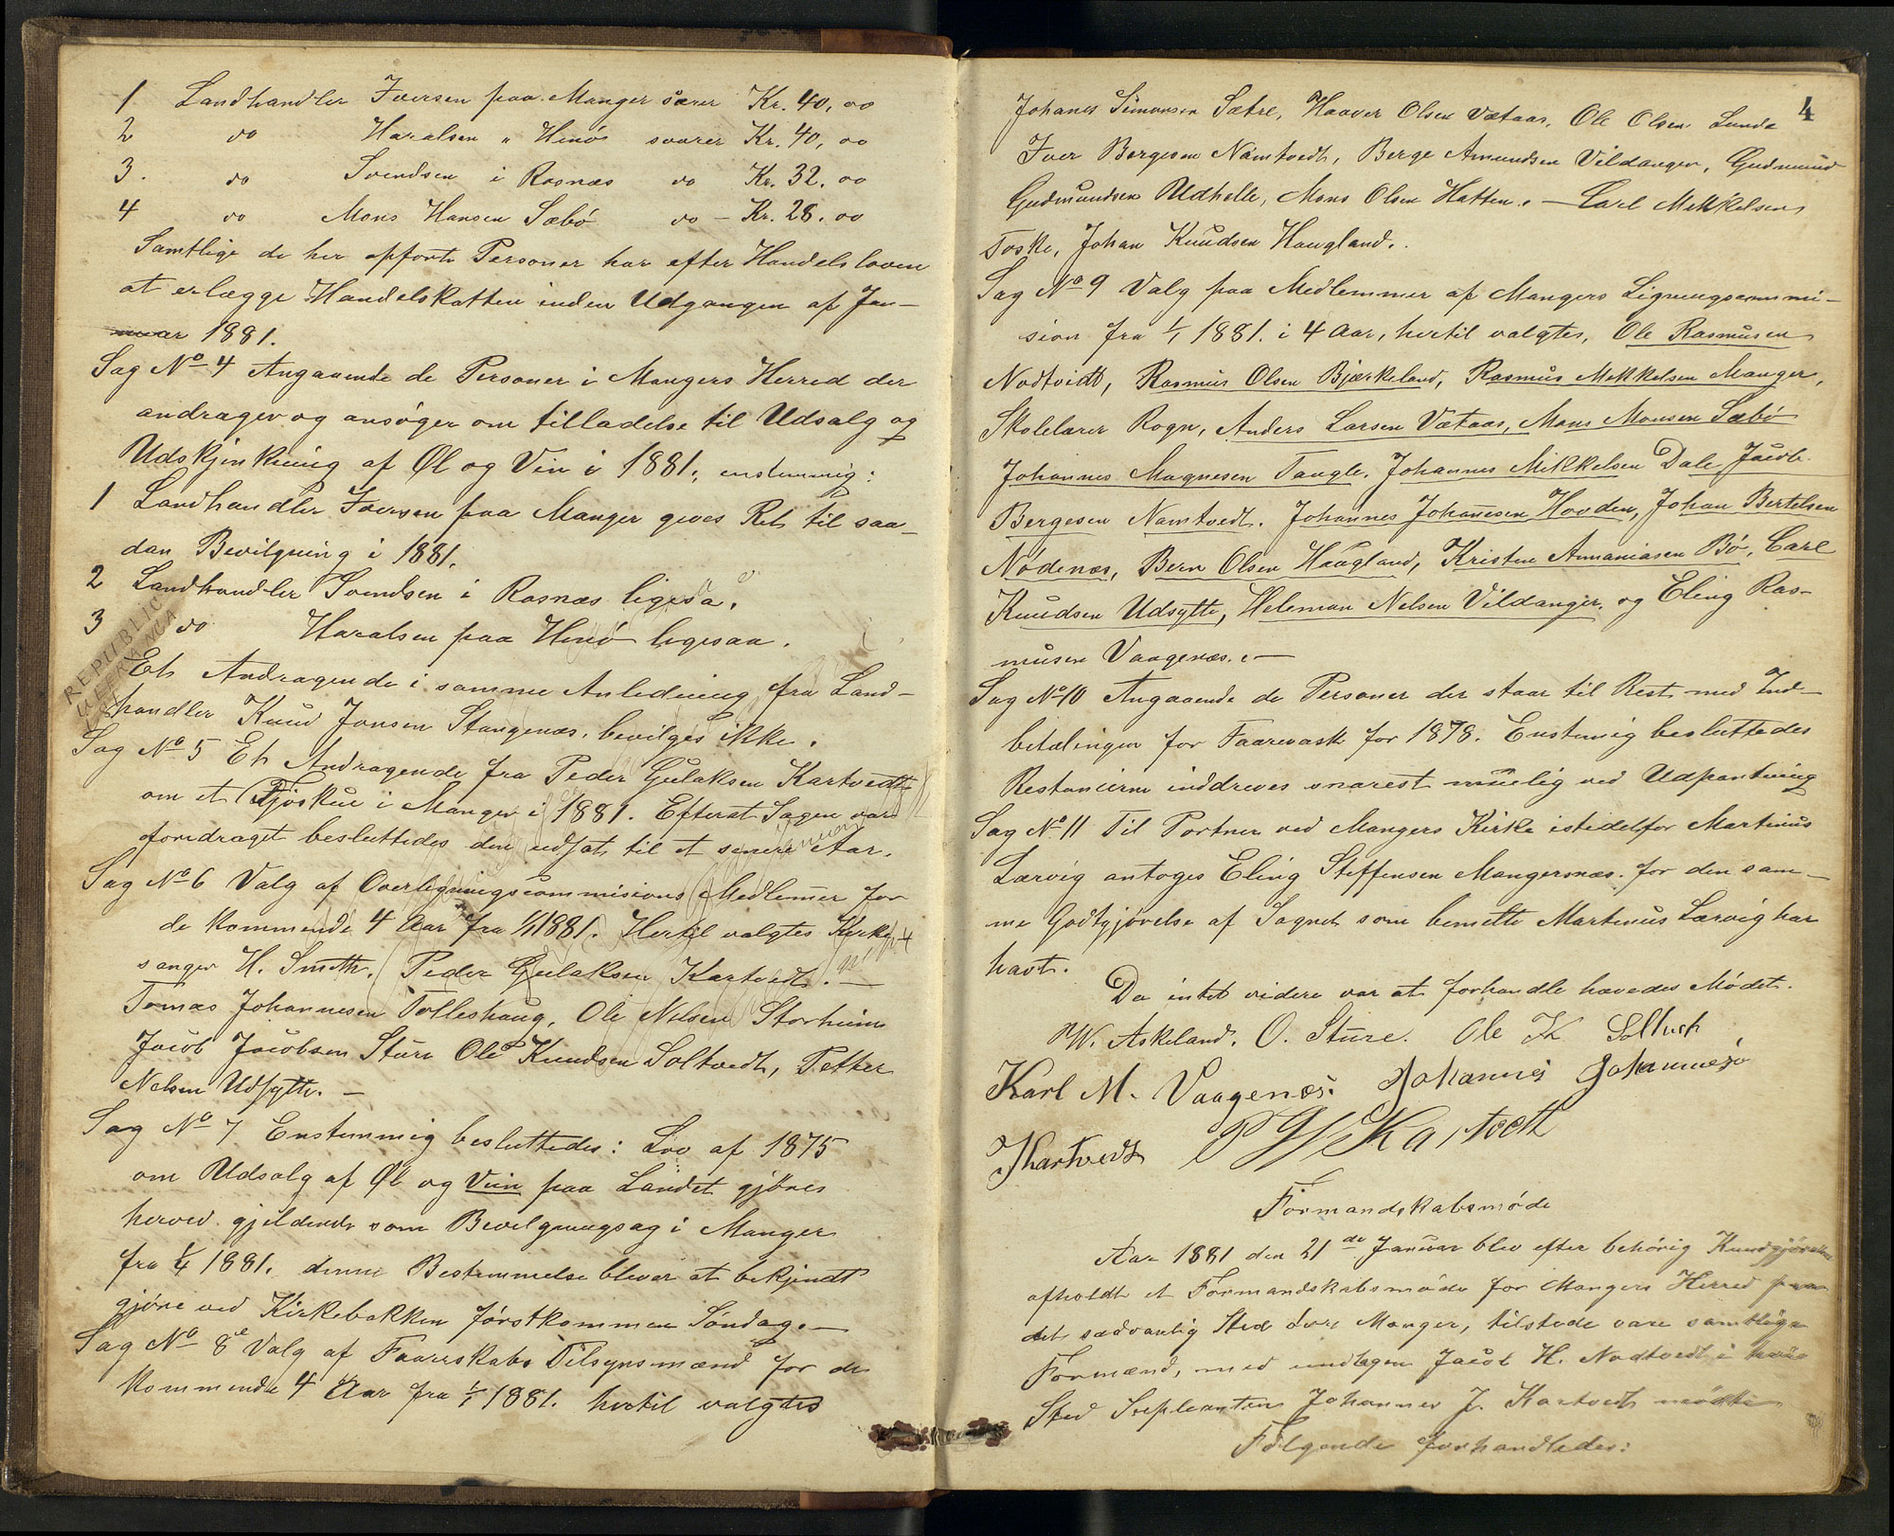 1 Landhandler Iversen paa Manger svarer Kr. 40,00
2 do Haralsen " Henø svarer Kr. 40,00
3. do Svendsen i Rosnæs do Kr. 32.00
4 do Mons Hansen Sæbø do - Kr. 28.00
Samtlige de her opførte Personer har efter Handelsloven
at erlægge Handelskatten inden Udgangen af Jan-
uar 1881.
Sag No 4 Angaaende de Personer i Mangers Herred der
andrager og ansøger om tilladelse til Udsalg og
Udskjenkning af Øl og Vin i 1881., enstemmig:
1 Landhandler Iversen paa Manger gives Ret til saa-
dan Bevilgning i 1881.
2 Landhandler Svendsen i Rosnæs ligesaa.
3 do Haralsen paa Henø ligesaa.
Et Andragende i samme Anledning fra Land-
handler Knud Jonsen Stangenæs, bevilges ikke.
Sag No 5 Et Andragende fra Peder Gulaksen Kartvedt
om et i Manger i 1881. Efterat Sagen var
foredraget besluttedes den udsat til et senere Aar.
Sag No 6 Valg af Overligningscommisions Medlemer for
de kommende 4 Aar fra 1/1 1881. Hertil valgtes Kirke-
sanger H. Smith. Peder Gulaksen Kartvedt. —
Tomas Johannesen Tolleshaug, Ole Nelsen Storheim
Jacob Jacobsen Sture Ole Knudsen Soltvedt, Petter
Nelsen Udsytte. —
Sag No 7 Enstemmig besluttedes: Lov af 1875
om Udsalg af Øl og Viin paa Landet gjøres
herved gjeldende som Bevilgningsag i Manger
fra 1/1 1881. denne Bestemmelse bliver at bekjendt
gjøre ved Kirkebakken førstkommen Søndag. —
Sag No 8 Valg af Faareskabs Tilsynsmænd for de
kommende 4 Aar fra 1/1 1881. hertil valgtes
4
Johanes Simonsen Sætre, Haaver Olsen Vætaas, Ole Olsen Lunde
Iver Borgesen Namtvedt, Berge Amundsen Vildanger, Gudmund
Gudmundsen Udhelle, Mons Olsen Hatten. — Carl Mikkelsen
Toske, Johan Knudsen Haugland.
Sag No 9 Valg paa Medlemmer af Mangers Ligningscommi-
sion fra 1/1 1881. i 4 Aar, hertil valgtes, Ole Rasmusen
Nodtvidt, Rasmus Olsen Bjærkeland, Rasmus Mikkelsen Manger,
Skolelærer Rogn, Anders Larsen Vætaas, Mons Monsen Sæbø
Johannes Magnesen Taugle, Johannes Mikkelsen Dale, Jacob
Bergesen Namtvedt. Johannes Johanesen Hovden, Johan Bertelsen
Nødenæs, Bern Olsen Haagland, Kristen Annaniasen Bø, Carl
Knudsen Udsytte, Heleman Nelsen Vildanger, og Eling Ras-
musen Vaagenæs. —
Sag No 10 Angaaende de Personer der staar til Rest med Ind-
betalingen for Faarevask for 1878. Enstemig besluttedes
Restancerne inddreves snarest muelig ved Udpantning
Sag No 11 Til Portner ved Mangers Kirke istedetfor Martinus
Lærvig antoges Eling Steffensen Mangersnæs for den sam-
me Godtgjørelse af Sognet som bemelte Martinus Lærvig har
havt.
Da intet videre var at forhandle hævedes Mødet.
W. Askeland. O. Sture. Ole K
Karl M. Vaagenæs. Johannes Johannesen
JKartvedt P G Kartvedt
Formandskabsmøde
Aar 1881 den 21de Januar blev efter behørig Kundgjørelse
afholdt et Formandskabsmøde for Mangers Herred paa
det sædvanlig Sted Øvre Manger, tilstede vare samtlige
Formænd, med undtagen Jacob H. Nodtvedt i hans
Sted Supleanten Johannes J. Kartvedt mødte
Følgende forhandledes: